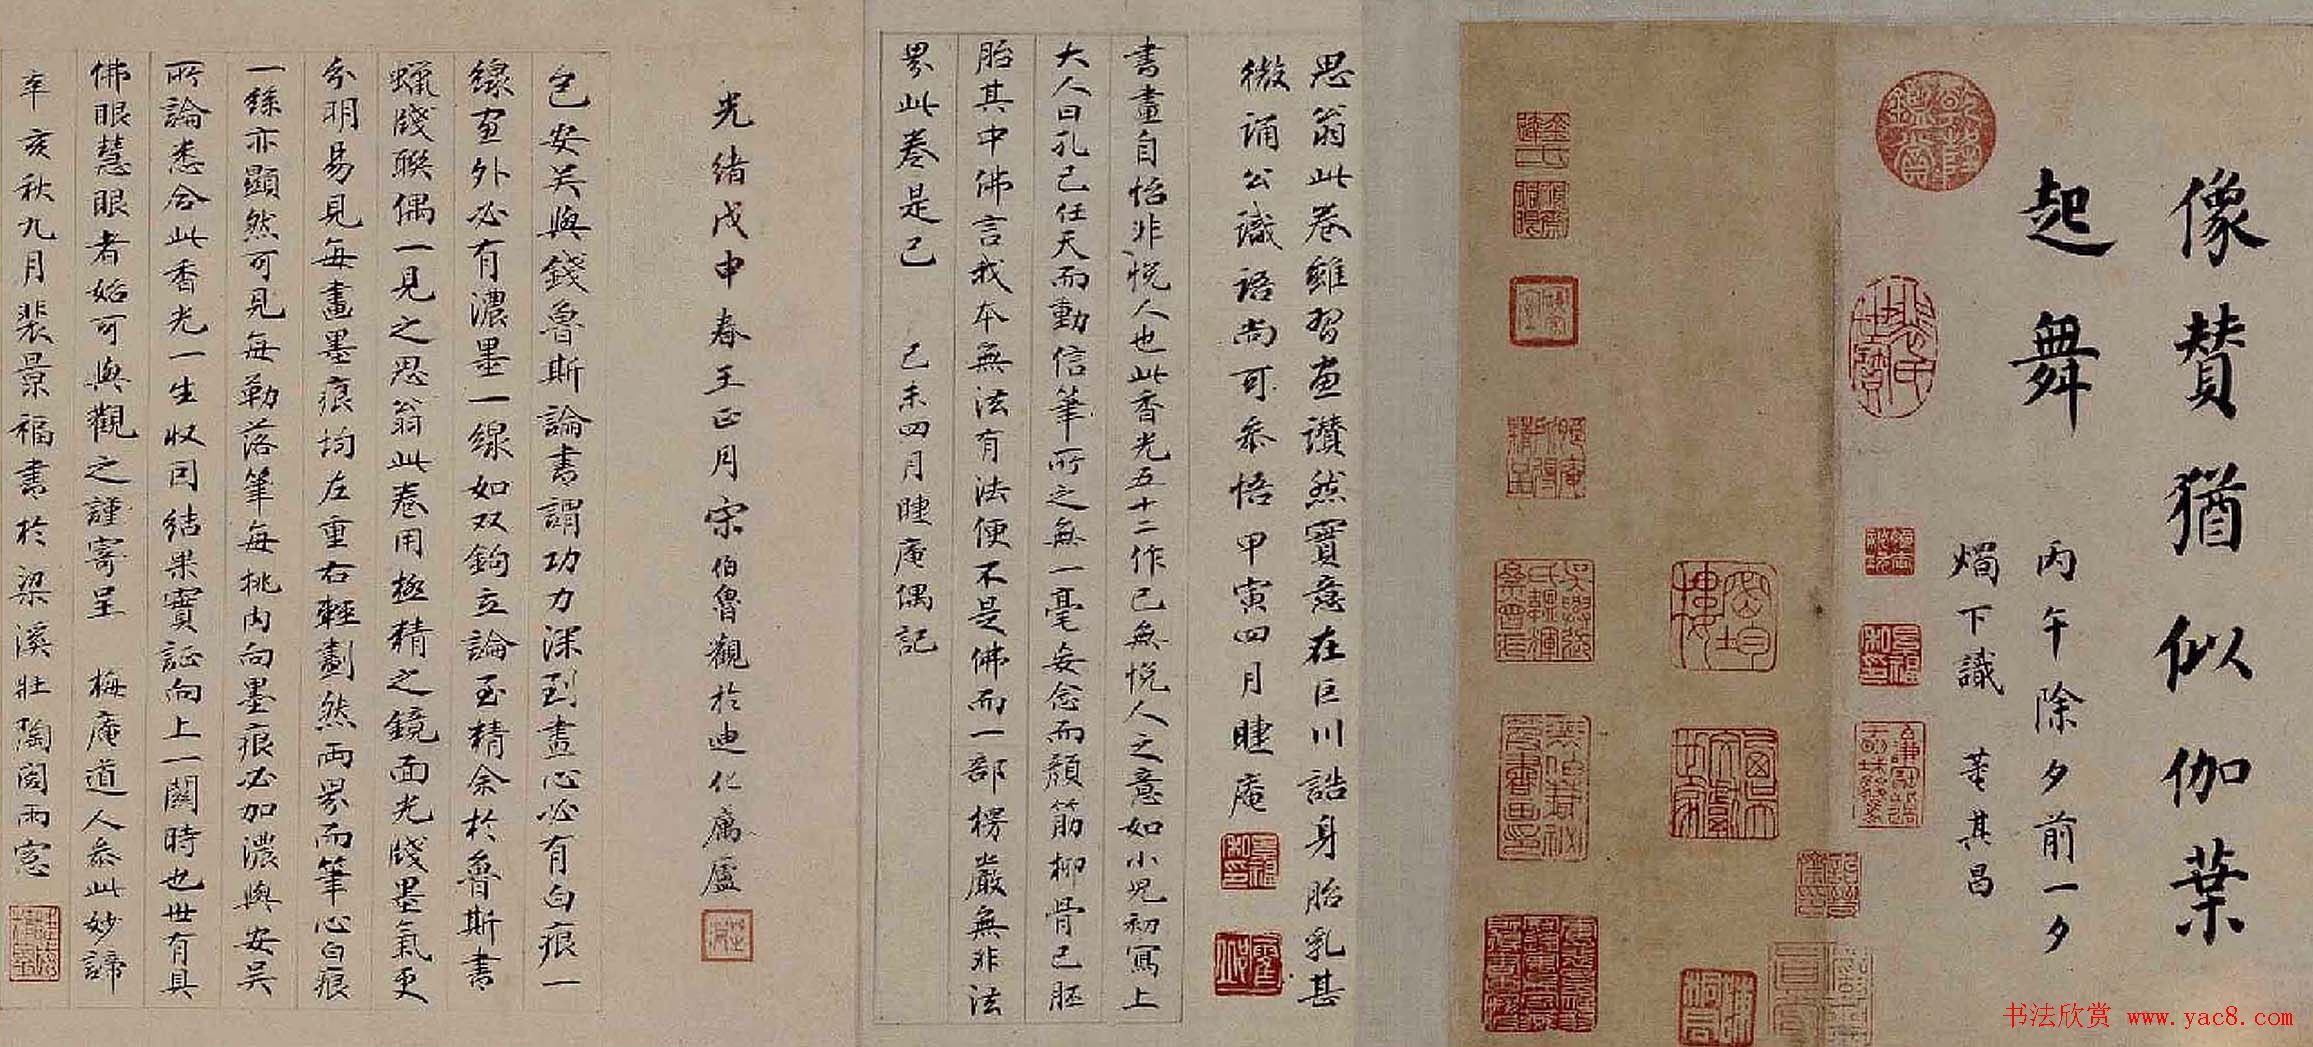 像贊猶似伽葉
起舞
丙午除夕前一夕
燭下識 董其昌
思翁此卷雖習画讚然實意在巨川誥身胎乳甚
微誦公識語尚可參悟甲寅四月睫庵
書畫自怡非悅人也此香光五十二作已無悅人之意如小兒初寫上
大人曰孔已任天而動信筆所之無一毫妄念而顏筋柳骨已胚
胎其中佛言我本無法有法便不是佛而一部楞嚴無非法
界此卷是已 己未四月睫庵偶記
光緒戊申春王正月宋伯魯觀於迪化廡廬
包安吳與錢魯斯論書謂功力深到畫心必有白痕一
線画外必有濃墨一線如双鉤立論至精余於魯斯書
蠟牋聯偶一見之思翁此卷用極精之鏡面光牋墨氣更
分明易見每畫墨痕均左重右輕劃然兩界而筆心白痕
一絲亦顯然可見每勒落筆每挑内向墨痕必加濃與安吳
所論悉合此香光一生收因結果實証向上一關時也世有具
佛眼慧眼者始可與觀之謹寄呈 梅庵道人參此妙諦
辛亥秋九月裴景福書於梁溪壯陶閣雨窓
书法欣赏 www.yac8.com